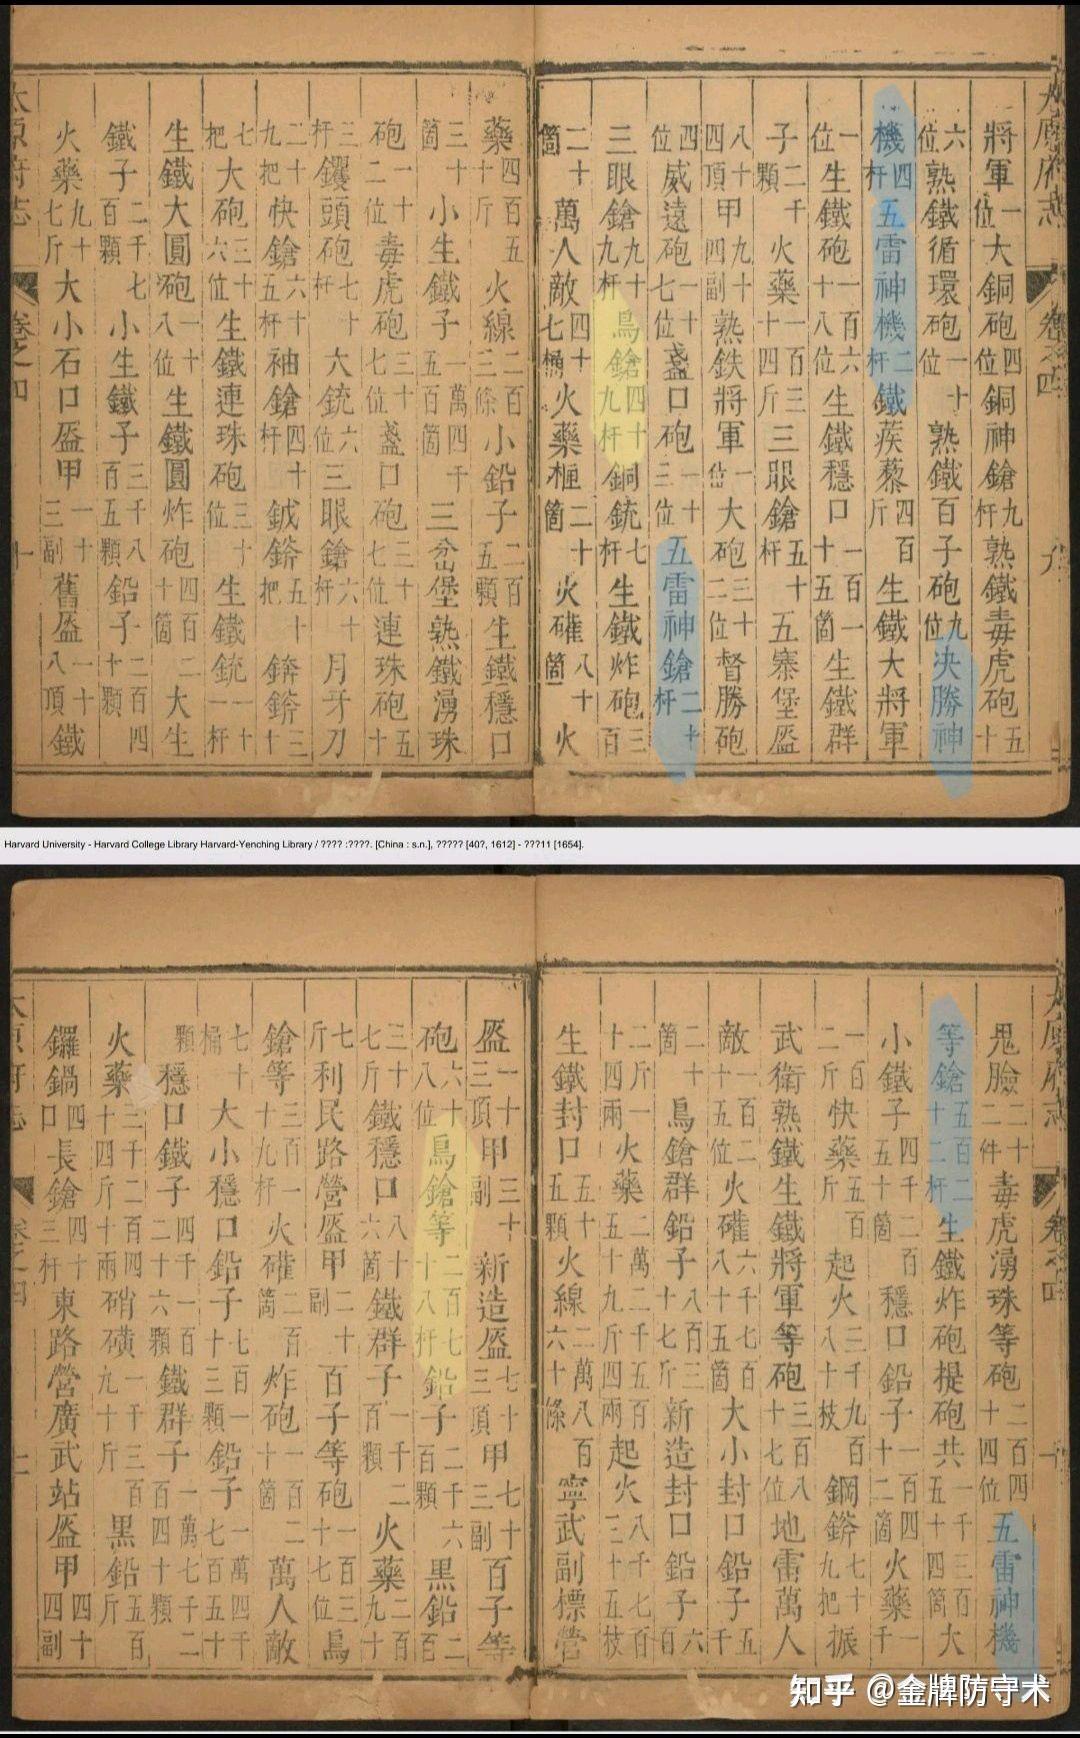 大原府志 卷之四 九
將軍一位大銅砲四位銅神鎗九杆熟鐵毒虎砲五十
六位熟鐵循環砲一十位熟鐵百子砲九位決勝神
機四杆五雷神機二杆鐵蒺藜四百斤生鐵大將軍
一位生鐵砲一百六十八位生鐵穩口一百一十五箇生鐵群
子二千顆火藥一百三十四斤三眼鎗五十杆五寨堡盔
八十四頂甲九十四副熟鉄將軍一位大砲三十二位督勝砲
四位威遠砲一十七位盞口砲一十三位五雷神鎗二十杆
三眼鎗九十九杆鳥鎗四十九杆銅銃七杆生鐵炸砲三百
二十箇萬人敵四十七桶火藥櫃二十箇火礶八十箇火
藥四百五十斤火線二百三條小鉛子二百五顆生鐵穩口
三十箇小生鐵子一萬四千五百箇三岔堡熟鐵湧珠
砲一十二位毒虎砲三十七位盞口砲三十七位連珠砲五十
三杆钁頭砲七十杆大銃六位三眼鎗六十杆月牙刀
二十九把快鎗六十五杆袖鎗四十杆鉞鎊五十把錛鎊三十
七把大砲三十六位生鐵連珠砲三十位生鐵銃一十杆
生鐵大圓砲一十八位生鐵圓炸砲四百二十箇大生
鐵子二千七百顆小生鐵子三千八百五顆鉛子二百四十顆
火藥九十七斤大小石口盔甲一十三副舊盔一十八頂鐵
太原府志 卷之四 十
Harvard University - Harvard College Library Harvard-Yenching Library / ???? :????. [China : s.n.], ????? [40?, 1612] - ???11 [1654].
太原府志 卷之四 十
鬼臉二十二件毒虎湧珠等砲二百四十四位五雷神機
等鎗五百二十二杆生鐵炸砲提砲共一千三百五十四箇大
小鐵子四千二百五十箇穩口鉛子一百四十二箇火藥一千
一百二斤快藥五百斤起火三千九百八十枝鋼鎊七十九把振
武衛熟鐵生鐵將軍等砲三百八十七位地雷萬人
敵一百二十五位火礶六千七百八十五箇大小封口鉛子五千
二十箇鳥鎗群鉛子八百三十七斤新造封口鉛子六百
二斤一十四兩火藥二萬二千五百五十九斤四兩起火八千七百三十五枝
生鐵封口五十五顆火線二萬八百六十條寧武副標營
盔一十三頂甲三十副新造盔七十三頂甲七十三副百子等
砲六十八位鳥鎗等二百七十八杆鉛子二千六百顆黑鉛二百
三十七斤鐵穩口八十六箇鐵群子一千二百顆火藥二百九十
七斤利民路營盔甲二十副百子等砲一百三十七位鳥
鎗等三百一十九杆火礶二百箇炸砲一百二十箇萬人敵
七十桶大小穩口鉛子七百一十三顆鉛子一萬四千七百五十
顆穩口鐵子四千一百二十六顆鐵群子一萬七千二百四十顆
火藥二千二百四十四斤十兩硝磺一千三百九十斤黑鉛五百斤
鑼鍋四口長鎗四十三杆東路營廣武站盔甲四十四副
太原府志 卷之四 十一
知乎 @金牌防守术